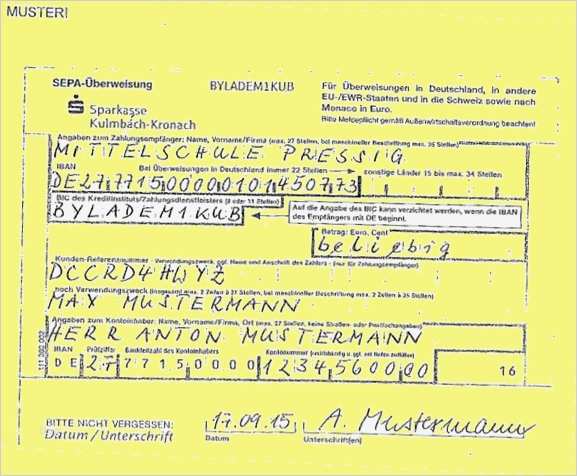 MUSTER!
SEPA-Überweisung BYLADEM1KUB
Für Überweisungen in Deutschland, in andere
EU-/EWR-Staaten und in die Schweiz sowie nach
Monaco in Euro.
Bitte Meldepflicht gemäß Außenwirtschaftsverordnung beachten!
Sparkasse
Kulmbach-Kronach
Angaben zum Zahlungsempfänger: Name, Vorname/Firma (max. 27 Stellen, bei maschineller Beschriftung max. 35 Stellen)
MITTELSCHULE PRESSIG
IBAN Bei Überweisungen in Deutschland immer 22 Stellen sonstige Länder 15 bis max. 34 Stellen
DE27771500000101450773
BIC des Kreditinstituts/Zahlungsdienstleisters (8 oder 11 Stellen)
BYLADEM1KUB
Auf die Angabe des BIC kann verzichtet werden, wenn die IBAN
des Empfängers mit DE beginnt.
Betrag: Euro, Cent
beliebig
Kunden-Referenznummer - Verwendungszweck, ggf. Name und Anschrift des Zahlers - (nur für Zahlungsempfänger)
DCCRD4HWYZ
noch Verwendungszweck (insgesamt max. 2 Zeilen à 27 Stellen, bei maschineller Beschriftung max. 2 Zeilen à 35 Stellen)
MAX MUSTERMANN
Angaben zum Kontoinhaber: Name, Vorname/Firma, Ort (max. 27 Stellen, keine Straßen- oder Postfachangaben)
HERR ANTON MUSTERMANN
IBAN Prüfziffer Bankleitzahl des Kontoinhabers Kontonummer (rechtsbündig u. ggf. mit Nullen auffüllen)
DE 27 77150000 1234560000 16
BITTE NICHT VERGESSEN:
Datum / Unterschrift
17.09.15 A. Mustermann
Datum Unterschrift(en)